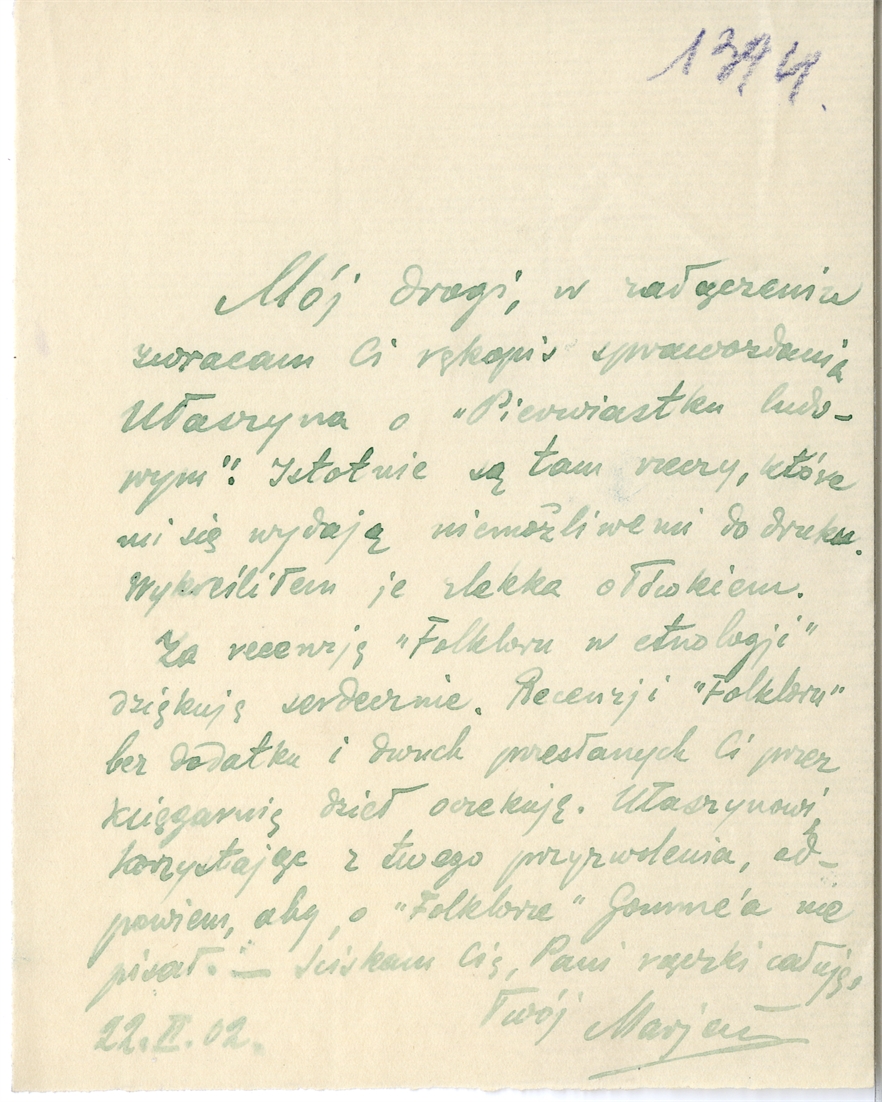 1394.
Mój drogi, w załączeniu
zwracam Ci rękopis sprawozdania
Ułaszyna o "Pierwiastku ludo-
wym". Istotnie są tam rzeczy, które
mi się wydają niemożliwemi do druku.
Wykreśliłem je zlekka ołówkiem.
Za recenzję "Folkloru w etnologji"
dziękuję serdecznie. Recenzji "Folkloru"
bez dodatku i dwuch przesłanych Ci przez
księgarnię dzieł oczekuję. Ułaszynowi,
korzystając z twego przyzwolenia, od-
powiem, aby o "Folklorze" Gomme'a nie
pisał. — Ściskam Cię, Pani rączki całuję,
Twój Marjan
22.II.02.